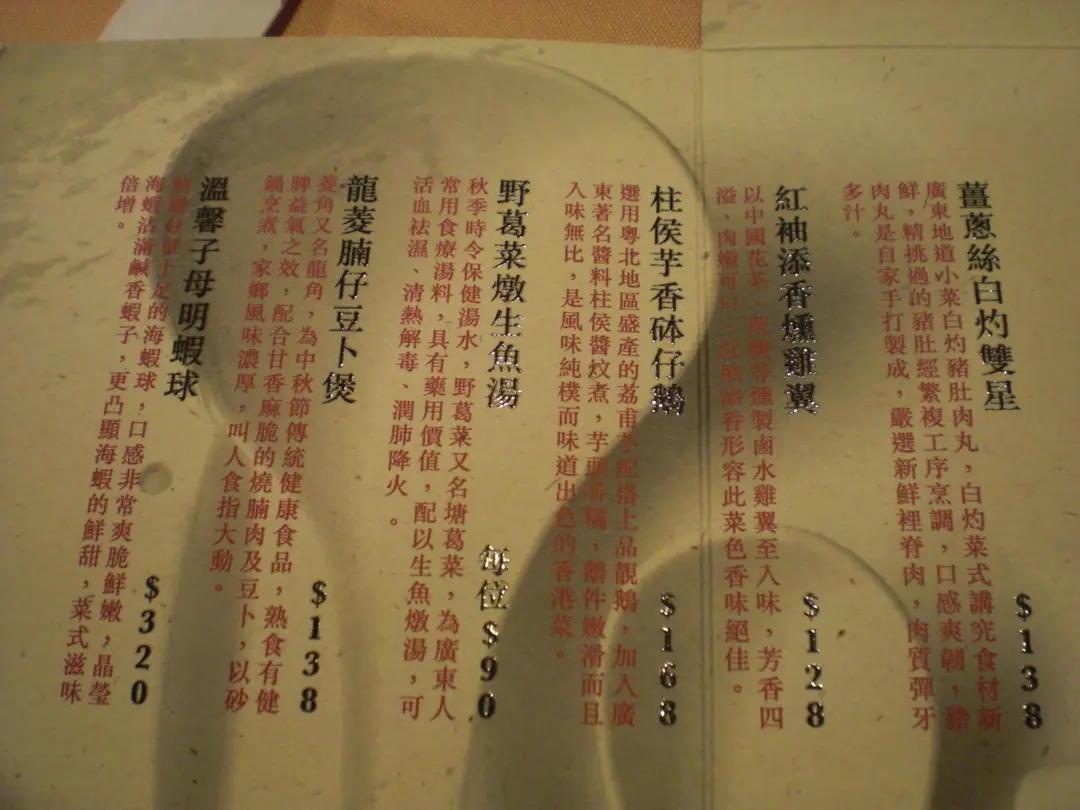 薑蔥絲白灼雙星
$138
廣東地道小菜白灼豬肚肉丸，白灼菜式講究食材新
鮮，精挑過的豬肚經繁複工序烹調，口感爽韌，豬
肉丸是自家手打製成，嚴選新鮮裡脊肉，肉質彈牙
多汁。
紅袖添香燻雞翼
$128
以中國花茶、燻製鹵水雞翼至入味，芳香四
溢，肉嫩可口，紅袖添香形容此菜色香味絕佳。
柱侯芋香砵仔鵝
$168
選用粵北地區盛產的荔甫芋配搭上品靚鵝，加入廣
東著名醬料柱侯醬炆煮，芋頭香糯，鵝件嫩滑而且
入味無比，是風味純樸而味道出色的香港菜。
野葛菜燉生魚湯
每位$90
秋季時令保健湯水，野葛菜又名塘葛菜，為廣東人
常用食療湯料，具有藥用價值，配以生魚燉湯，可
活血祛濕、清熱解毒、潤肺降火。
龍菱腩仔豆卜煲
$138
菱角又名龍角，為中秋節傳統健康食品，熟食有健
脾益氣之效，配合甘香麻脆的燒腩肉及豆卜，以砂
鍋烹煮，家鄉風味濃厚，叫人食指大動。
溫馨子母明蝦球
$320
十足的海蝦球，口感非常爽脆鮮嫩，晶瑩
海蝦沾滿鹹香蝦子，更凸顯海蝦的鮮甜，菜式滋味
倍增。